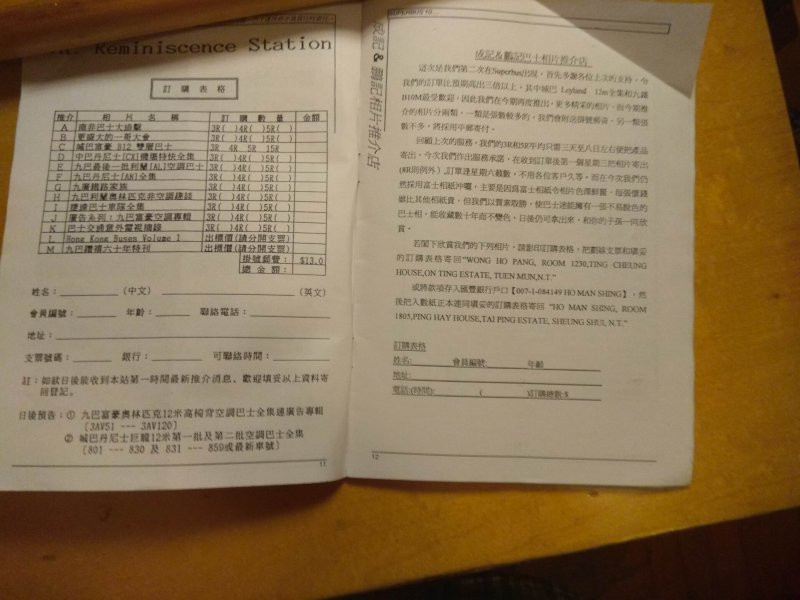 Reminiscence Station
訂購表格
推介 相片名稱 訂購數量 金額
A 南非巴士大追擊 3R( )4R( )5R( )
B 更盛大的一哥大會 3R( )4R( )5R( )
C 城巴富豪 B12 雙層巴士 3R 4R 5R 15R
D 中巴丹尼士[CX]機場特快全集 3R( )4R( )5R( )
E 九巴最後一批利蘭[AL]空調巴士 3R( )4R( )5R( )
F 九巴丹尼士[AN]全集 3R( )4R( )5R( )
G 九廣鐵路家族 3R( )4R( )5R( )
H 九巴利蘭奧林匹克非空調雜談 3R( )4R( )5R( )
I 巴士車隊全集 3R( )4R( )5R( )
J 廣告系列：九巴富豪空調專輯 3R( )4R( )5R( )
K 巴士交通意外電視摘錄 3R( )4R( )5R( )
L Hong Kong Buses Volume 1 出標價(請分開支票)
M 九巴鑽禧六十年特刊 出標價(請分開支票)
掛號郵費： $13.0
總金額：
姓名： (中文) (英文)
會員編號： 年齡： 聯絡電話：
地址：
支票號碼： 銀行： 可聯絡時間：
註：如欲日後能收到本站第一時間最新推介消息、歡迎填妥以上資料寄
回登記。
日後預告：① 九巴富豪奧林匹克12米高椅背空調巴士全集連廣告專輯
[3AV51 --- 3AV120]
② 城巴丹尼士巨龍12米第一批及第二批空調巴士全集
[801 --- 830 及 831 --- 859或最新車號]
11
SUPERBUS 10
成記 & 鵬記相片推介店
成記&鵬記巴士相片推介店
這次是我們第二次在Superbus出現，首先多謝各位上次的支持。今
我們的訂單比預期高出三倍以上，其中城巴 Leyland 12m全集和九鐵
B10M最受歡迎，因此我們在今期再度推出，更多精采的相片。而今期推
介的相片分兩類，一類是張數較多的，我們會附送掛號郵資，另一類張
數不多，將採用平郵寄付。
回顧上次的服務，我們的3R和5R平均只需三天至八日左右便把產品
寄出，今次我們作出服務承諾，在收到訂單後第一個星期三把相片寄出
(8R則例外)，訂單逢星期六截數，不用各位客戶久等。而在今次我們仍
然採用富士相紙沖曬，主要是因為富士相紙令相片色澤鮮麗，每張價錢
雖比其他相紙貴，但我們以質素取勝，使巴士迷能擁有一張不易脫色的
巴士相，能收藏數十年而不變色，日後仍可拿出來，和你的子孫一同欣
賞。
若閣下欣賞我們的下列相片，請影印訂購表格，把劃線支票和填妥
的訂購表格寄回"WONG HO PANG, ROOM 1230,TING CHEUNG
HOUSE,ON TING ESTATE, TUEN MUN,N.T."
或將款項存入匯豐銀行戶口【007-1-084149 HO MAN SHING】，然
後把入數紙正本連同填妥的訂購表格寄回 "HO MAN SHING, ROOM
1805,PING HAY HOUSE,TAI PING ESTATE, SHEUNG SHUI, N.T."
訂購表格
姓名: 會員編號: 年齡
地址:
電話:(時間): ( )訂購總數:$
12